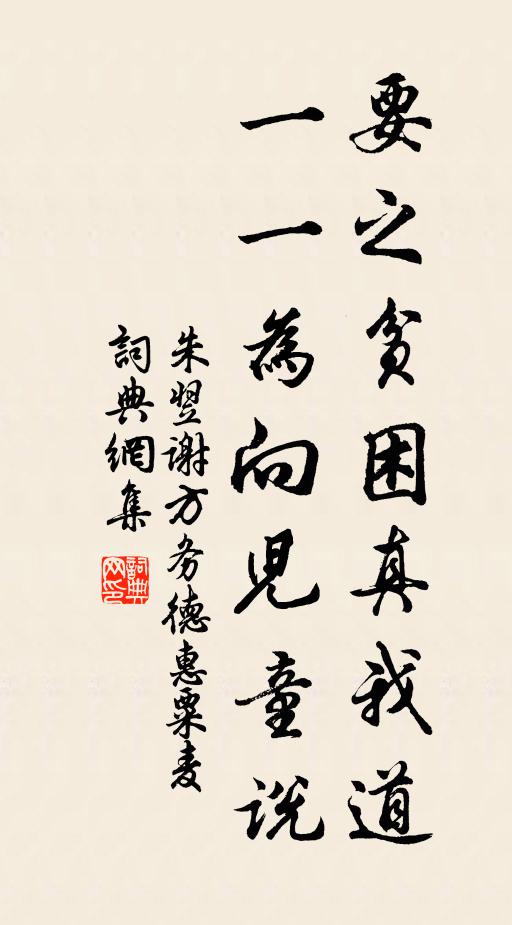 要之贫困真我道
一一為向兒童说
朱翌谢方务德惠粟麦
詞典網集
詞典网印